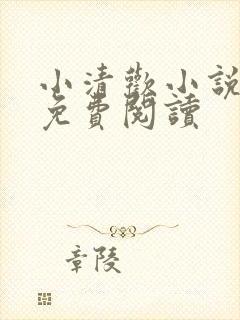 小清歡小說
免費閱讀
章陵